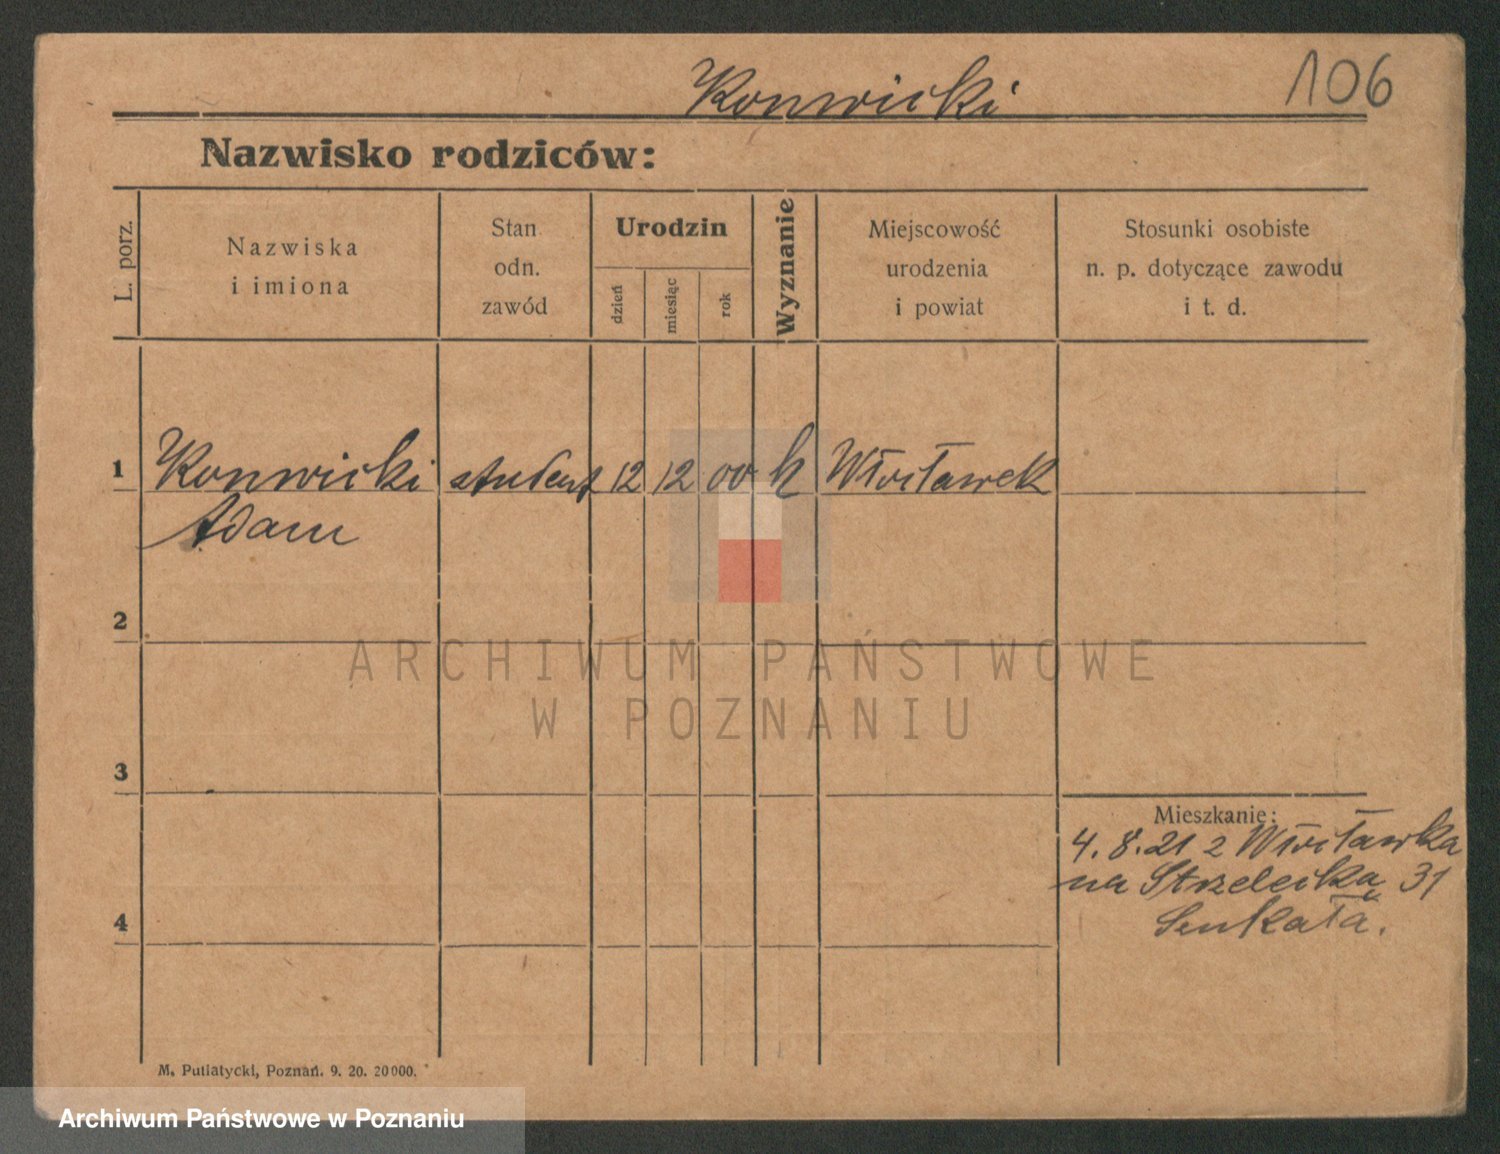 Konwicki
106
Nazwisko rodziców:
L. porz.
Nazwiska
i imiona
Stan
odn.
zawód
Urodzin
dzień
miesiąc
rok
Wyznanie
Miejscowość
urodzenia
i powiat
Stosunki osobiste
n. p. dotyczące zawodu
i t. d.
1 Konwicki student 12 12 00 k Włocławek
Adam
2
3
4
Mieszkanie:
4. 8. 21 z Włocławka
na Strzelecką 31
M. Putiatycki, Poznań. 9. 20. 20000.
ARCHIWUM PAŃSTWOWE
W POZNANIU
Archiwum Państwowe w Poznaniu